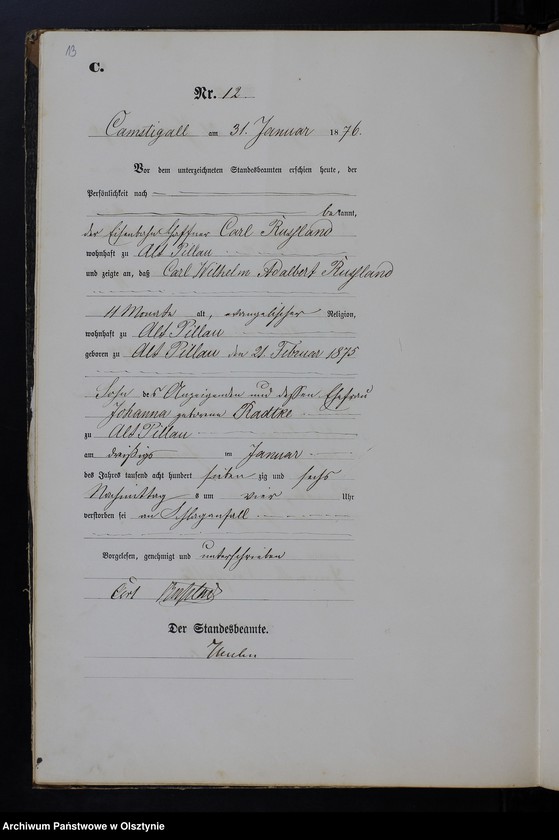 13
C.
Nr. 12
Camstigall am 31. Januar 1876.
Vor dem unterzeichneten Standesbeamten erschien heute, der
Persönlichkeit nach
bekannt,
der Eisenbahn Carl Rußland
wohnhaft zu Alt Pillau
und zeigte an, daß Carl Wilhelm Adalbert Rußland
11 Monate alt, evangelischer Religion,
wohnhaft zu Alt Pillau
geboren zu Alt Pillau den 21. Februar 1875
Sohn des Anzeigenden und dessen Ehefrau
Johanna geborene Radtke
zu Alt Pillau
am dreißigs im Januar
des Jahres tausend acht hundert sieben zig und sechs
Nachmittag s um vier Uhr
verstorben sei an Schlaganfall
Vorgelesen, genehmigt und unterschrieben
Carl
Der Standesbeamte.
Archiwum Państwowe w Olsztynie